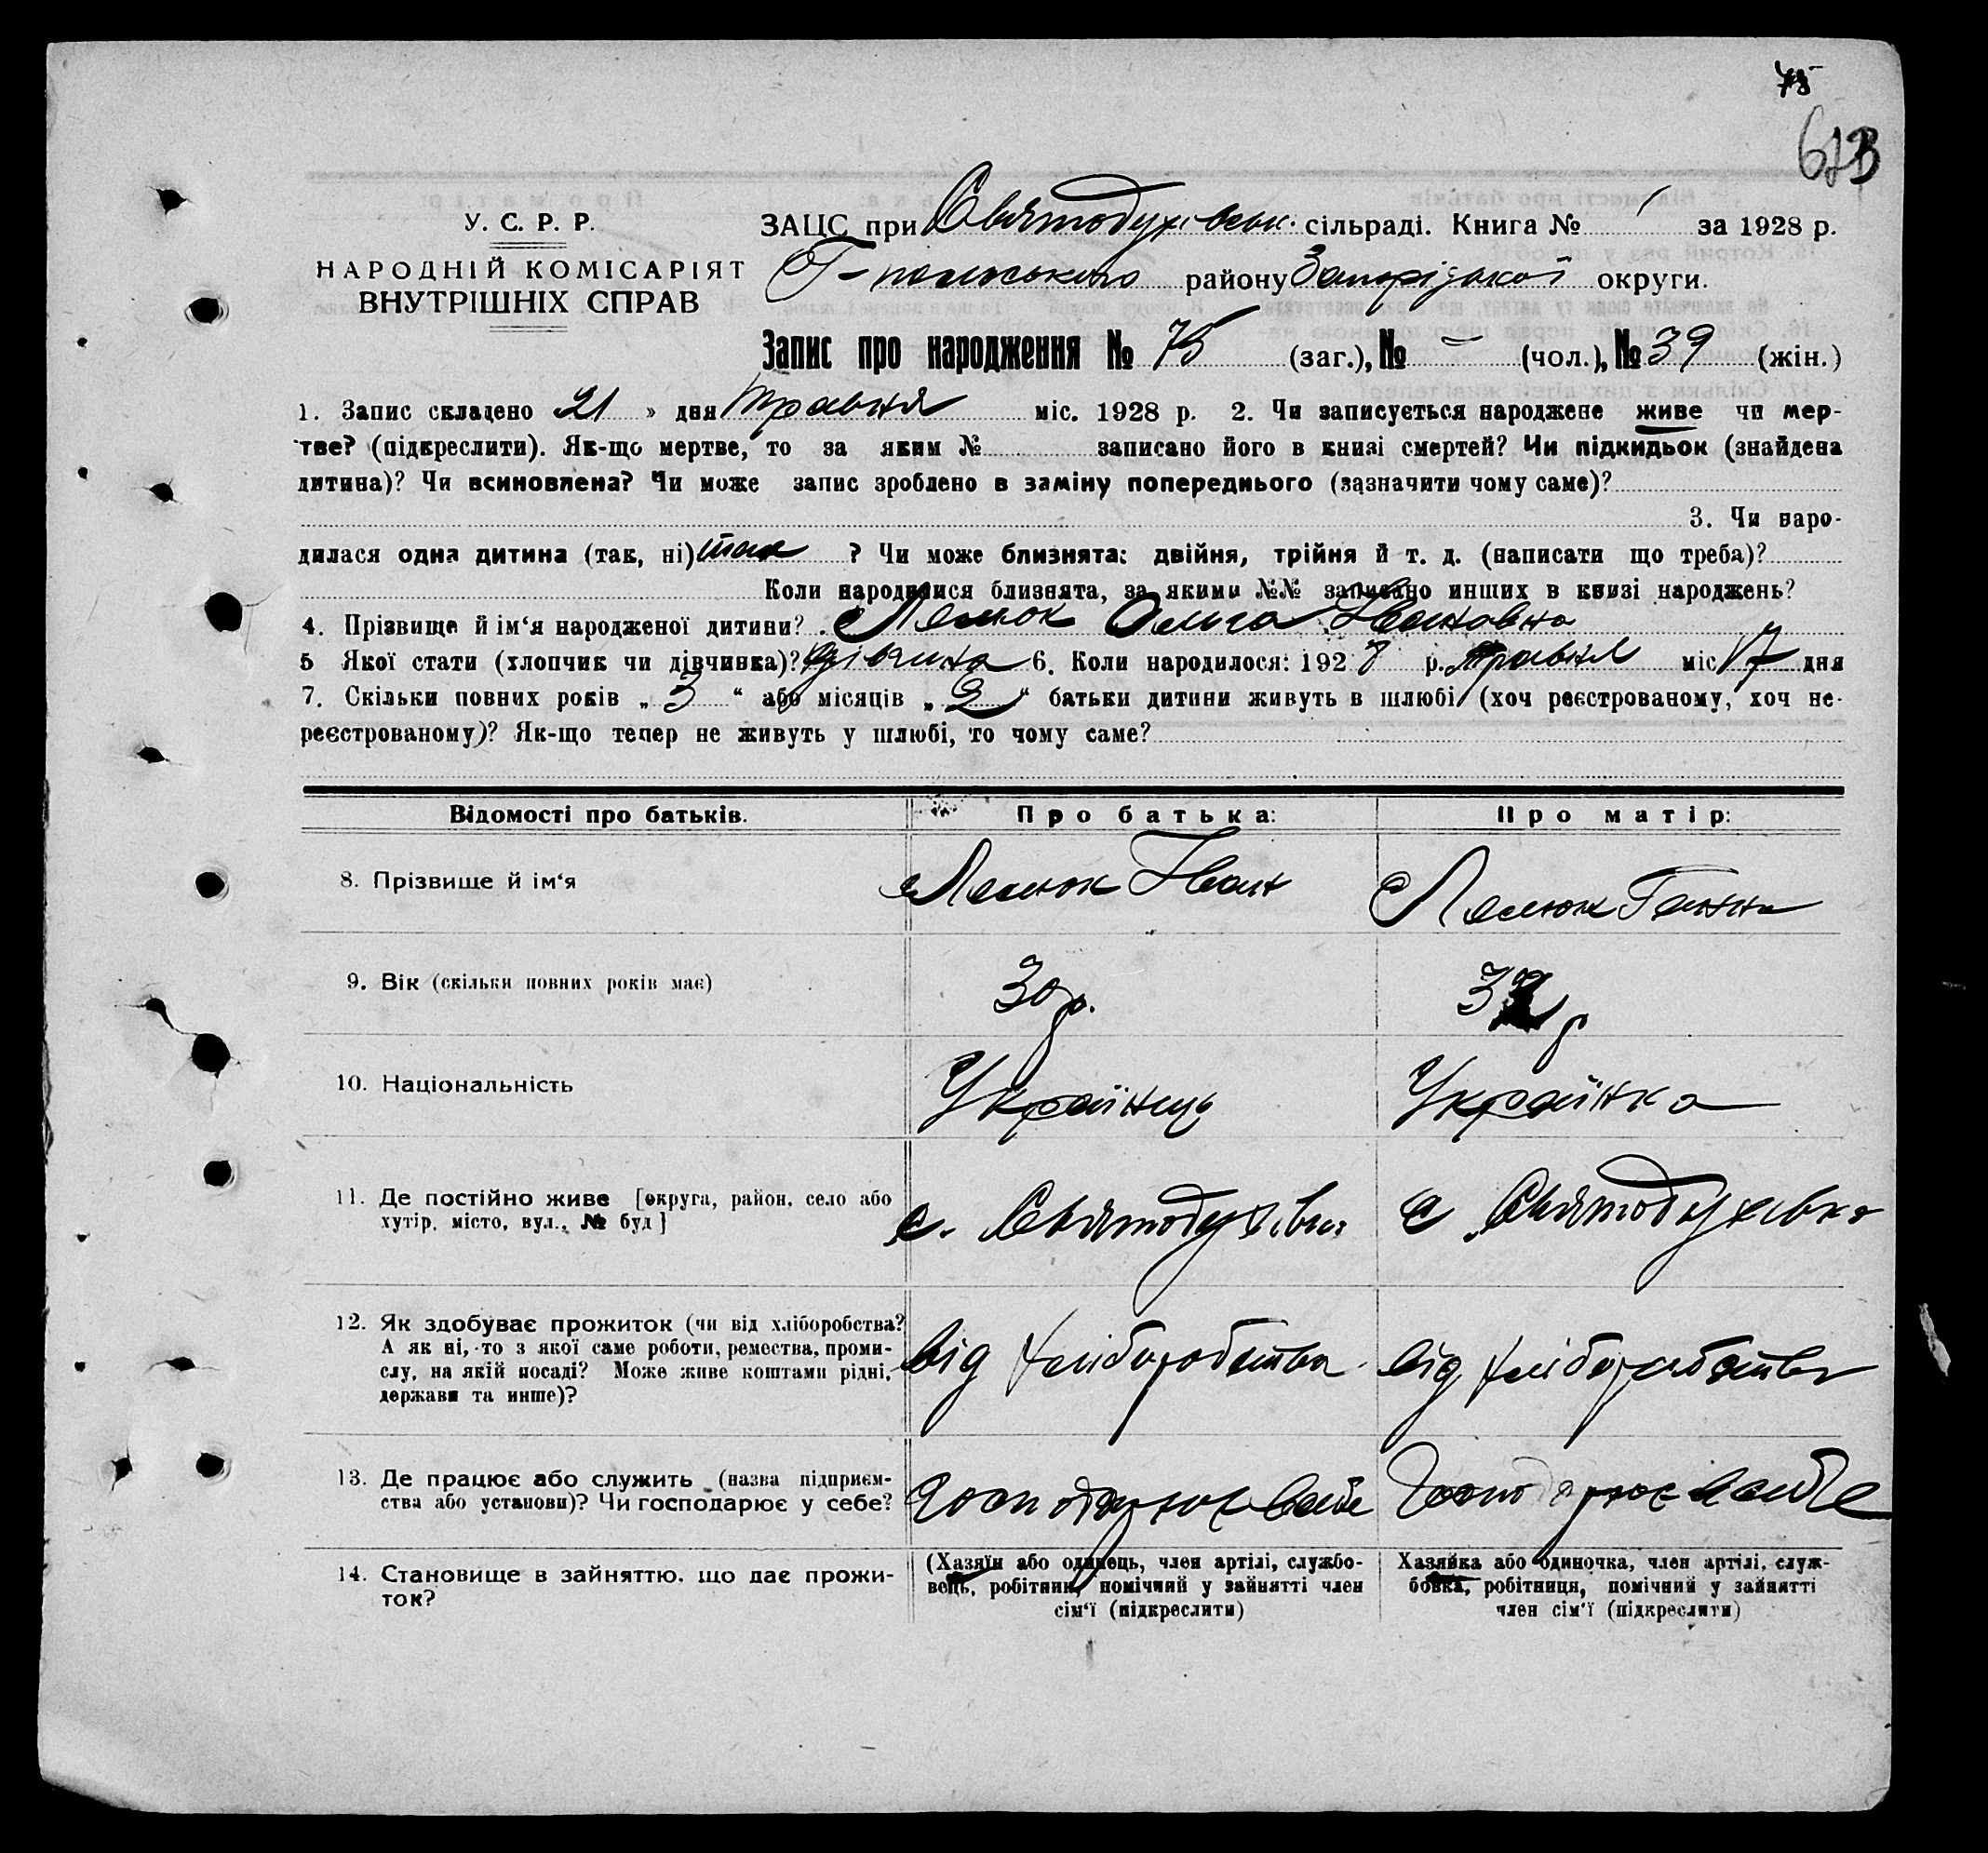 75
У. С. Р. Р.
НАРОДНІЙ КОМІСАРІЯТ
ВНУТРІШНІХ СПРАВ
ЗАЦС при Святодухівськ. сільраді. Книга № за 1928 р.
Г-польського району Запорізької округи.
Запис про народження № 75 (заг.), № – (чол.), № 39 (жін.)
1. Запис складено 21 » дня травня міс. 1928 р. 2. Чи записується народжене живе чи мер-
тве? (підкреслити). Як-що мертве, то за яким № записано його в книзі смертей? Чи підкидьок (знайдена
дитина)? Чи всиновлена? Чи може запис зроблено в заміну попереднього (зазначити чому саме)?
3. Чи наро-
дилася одна дитина (так, ні) так ? Чи може близнята: двійня, трійня й т. д. (написати що треба)?
Коли народилися близнята, за якими №№ записано инших в книзі народжень?
4. Прізвище й ім‘я народженої дитини? Ольга Івановна
5 Якої стати (хлопчик чи дівчинка)? дівчина 6. Коли народилося: 1928 р. травня міс 17 дня
7. Скільки повних років „ 3 “ або місяців „ 2 “ батьки дитини живуть в шлюбі (хоч реєстрованому, хоч не-
реєстрованому)? Як-що тепер не живуть у шлюбі, то чому саме?
Відомості про батьків. Про батька: Про матір:
8. Прізвище й ім‘я Іван Ганна
9. Вік (скільки повних років має) 30 р. р
10. Національність Українець Українка
11. Де постійно живе [округа, район, село або
хутір, місто, вул., № буд] с. Святодухівка с Святодухівка
12. Як здобуває прожиток (чи від хліборобства?
А як ні, то з якої саме роботи, ремества, проми-
слу, на якій посаді? Може живе коштами рідні,
держави та инше)? від хліборобства від хліборобства
13. Де працює або служить (назва підприєм-
ства або установи)? Чи господарює у себе? господарює в себе господарює в себе
14. Становище в зайняттю, що дає прожи-
ток?
(Хазяїн або одинець, член артілі, службо-
вець, робітник, помічний у зайнятті член
сім'ї (підкреслити)
Хазяйка або одиночка, член артілі, служ-
бовка, робітниця, помічний у зайнятті
член сім'ї (підкреслити)